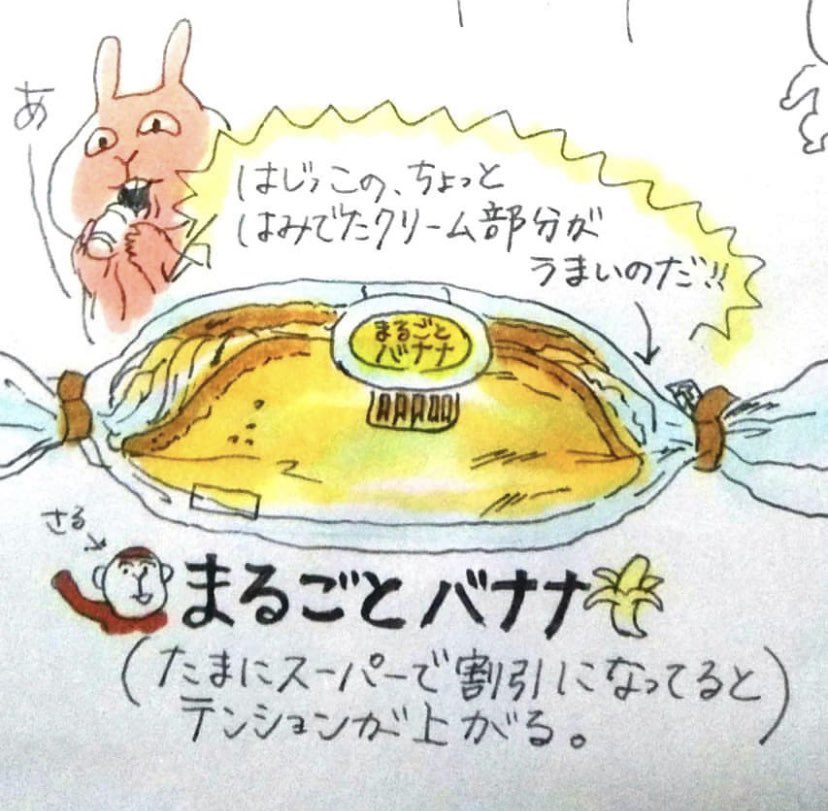 あ
はじっこの、ちょっと
はみでたクリーム部分が
うまいのだ!!
まるごと
バナナ
さる
まるごとバナナ
(たまにスーパーで割引になってると
テンションが上がる。)